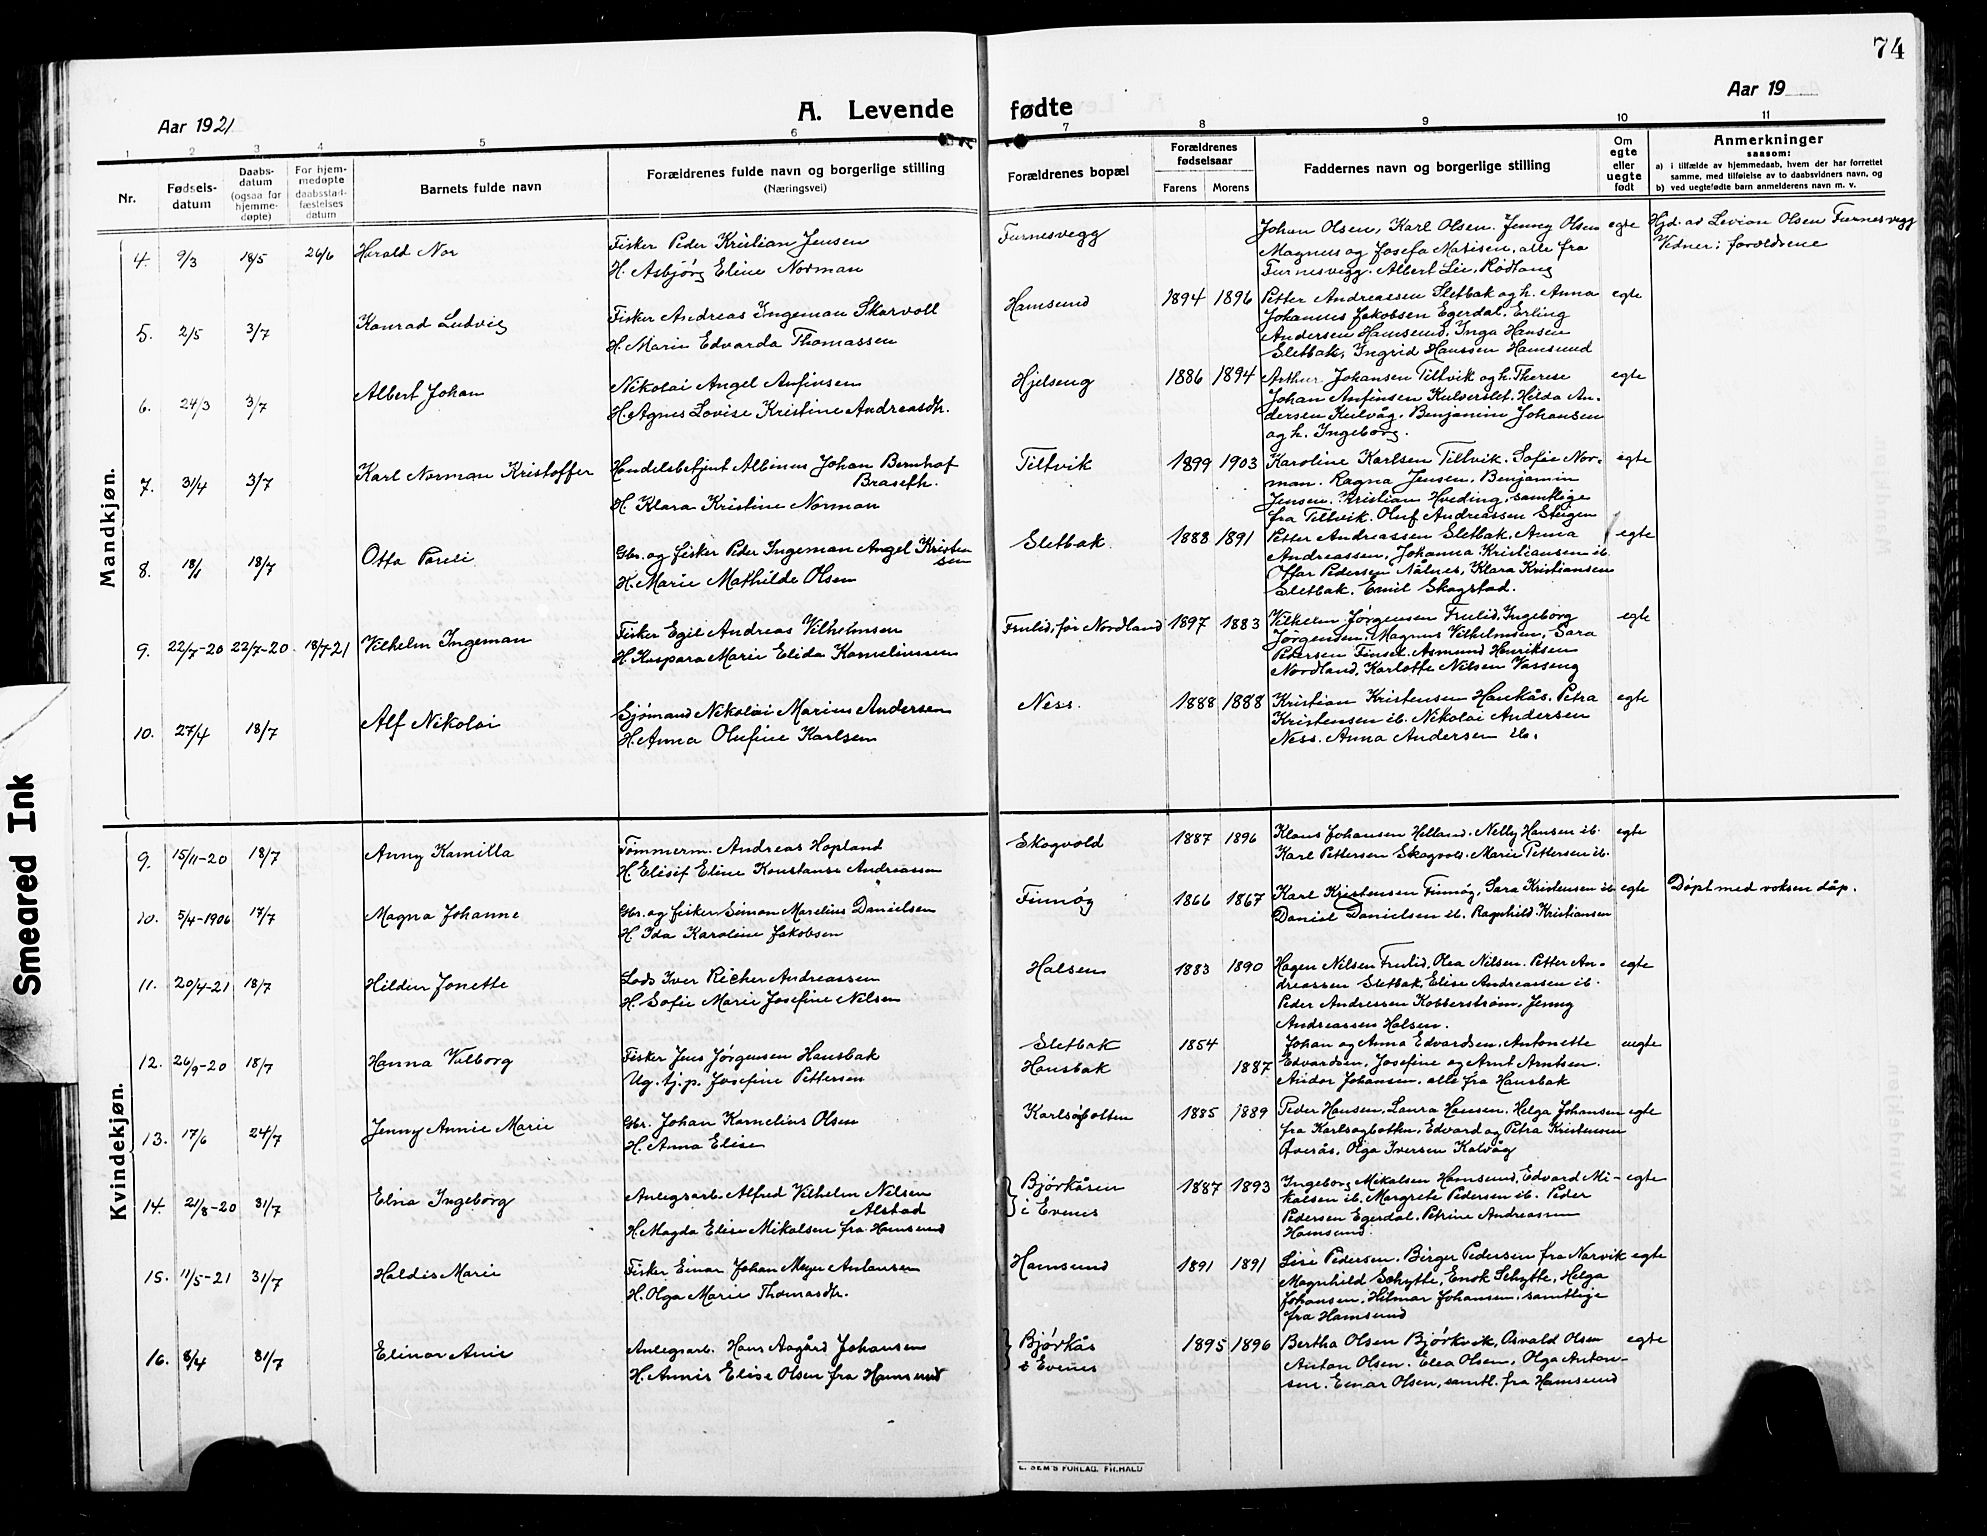 74
Aar 1921
A. Levende fødte
Aar 19
1 2 3 4 5 6 7 8 9 10 11
Nr.
Fødsels-
datum
Daabs-
datum
(ogsaa for
hjemme-
døpte)
For hjem-
medøpte
daabsstad-
fæstelses
datum
Barnets fulde navn
Forældrenes fulde navn og borgerlige stilling
(Næringsvei)
Forældrenes bopæl
Forældrenes
fødselsaar
Farens Morens
Faddernes navn og borgerlige stilling
Om
egte
eller
uegte
født
Anmerkninger
saasom:
a) i tilfælde av hjemmedaab, hvem der har forrettet
samme, med tilføielse av to daabsvidners navn, og
b) ved uegtefødte barn anmelderens navn m. v.
Mandkjøn.
4. 9/3 18/5 26/6 Harald Nor
Fisker Peder Kristian Jensen
H. Asbjørg Eline Norman
Furnesvegg
Johan Olsen, Karl Olsen, Jenny Olsen
Magnus og Josefa Matisen, alle fra
Furnesvegg. Albert Lie, Rødtang
egte
Hjd. av Levion Olsen Furnesvegg
Vidner: forældrene
5. 2/5 3/7 Konrad Ludvig
Fisker Andreas Ingeman Skarvoll
H. Marie Edvarda Thomassen
Hamsund 1894 1896
Petter Andreassen Sletbak og h. Anna
Johannes Jakobsen Egerdal, Erling
Andersen Hamsund, Inga Hansen
Sletbak, Ingrid Hanssen Hamsund
egte
6. 24/3 3/7 Albert Johan
Nikolai Angel Anfinsen
H. Agnes Lovise Kristine Andreasdtr.
Hjelseng 1886 1894
Arthur Johansen Tiltvik og h. Therese
Johan Anfinsen Kulverslet, Hilda An-
dersen Keilvåg, Benjamin Johansen
og h. Ingeborg.
egte
7. 31/4 3/7 Karl Norman Kristoffer
Handelsbetjent Albinus Johan Bernhof
Braseth.
H. Klara Kristine Norman
Tiltvik 1899 1903
Karoline Karlsen Tiltvik. Sofie Nor-
man. Ragna Jensen, Benjamin
Jensen. Kristian Hveding, samtlige
fra Tiltvik. Oluf Andreassen Steigen
egte
8. 18/1 18/7 Otto Pauli
Gbr. og fisker Peder Ingeman Angel Kristen
sen
H. Marie Mathilde Olsen
Sletbak 1888 1891
Petter Andreassen Sletbak, Anna
Andreassen, Johanna Kristiansen ib.
Ottar Pedersen Nålnes, Klara Kristiansen
Sletbak. Emil Skogstad.
egte
9. 22/7-20 22/7-20 18/7-21 Vilhelm Ingeman
Fisker Egil Andreas Vilhelmsen
H. Kaspara Marie Elida Korneliussen
Frulid, før Nordland 1897 1883
Vilhelm Jørgensen Frulid, Ingeborg
Jørgensen, Magnus Vilhelmsen, Sara
Pedersen Finset. Asmund Henriksen
Nordland, Karlotte Nilsen Vasseng
egte
10. 27/4 18/7 Alf Nikolai
Sjømand Nikolai Marius Andersen
H. Anna Olufine Karlsen
Ness. 1888 1888
Kristian Kristensen Haukås. Petra
Kristensen ib. Nikolai Andersen
Ness. Anna Andersen ib.
egte
Kvindekjøn.
9. 15/11-20 18/7 Anny Kamilla
Tømmerm. Andreas Hopland
H. Elisef Eline Konstanse Andreassen
Skogvold 1887 1896
Klaus Johansen Helland. Nelly Hansen ib.
Karl Pettersen Skogvold. Marie Pettersen ib.
egte
10. 5/4-1906 17/7 Magna Johanne
Gbr. og fisker Simon Marelius Danielsen
H. Ida Karoline Jakobsen
Finnøy 1866 1867
Karl Kristensen Finnøy, Sara Kristensen ib.
Daniel Danielsen ib. Ragnhild Kristiansen
egte
Døpt med voksen dåp.
11. 20/4-21 18/7 Hildur Jonette
Lods Iver Richer Andreassen
H. Sofie Marie Josefine Nilsen
Halsen 1883 1890
Hagen Nilsen Frulid, Olea Nilsen. Petter An-
dreassen Sletbak, Elise Andreassen ib.
Peder Andressen Kobberstrøm, Jenny
Andreassen Halsen.
egte
12. 26/9-20 18/7 Hanna Valborg
Fisker Jens Jørgensen Hansbak
Ug. tj. p. Josefine Pettersen
Sletbak 1854
Hansbak 1887
Johan og Anna Edvardsen, Antonette
Edvardsen, Josefine og Arnt Arntsen.
Andor Johansen, alle fra Hansbak
uegte
13. 17/6 24/7 Jenny Annie Marie
Gbr. Johan Kornelius Olsen
H. Anna Elise
Karlsøbotten 1885 1889
Peder Hansen, Laura Hansen. Helga Johansen
fra Karlsøgbotten, Edvard og Petra Kristensen
Øverås, Olga Iversen Kalvåg
egte
14. 21/8-20 31/7 Elna Ingeborg
Anlegsarb. Alfred Vilhelm Nilsen
Alstad
H. Magda Elise Mikalsen fra Hamsund
Bjørkåsen
i Evenes
1887 1893
Ingeborg Mikalsen Hamsund, Edvard Mi-
kalsen ib. Margrete Pedersen ib. Peder
Pedersen Egerdal, Petrine Andreassen
Hamsund.
egte
15. 11/5-21 31/7 Haldis Marie
Fisker Einar Johan Meyer Antonsen
H. Olga Marie Thomasdtr.
Hamsund 1891 1891
Lise Pedersen. Birger Pedersen fra Narvik
Magnhild Schytte, Enok Schytte, Helga
Johansen, Hilmar Johansen, samtlige
fra Hamsund
egte
16. 8/4 31/7 Elinor Anie
Anlegsarb. Hans Aagård Johansen
H. Annie Elise Olsen fra Hamsund
Bjørkås
i Evenes
1895 1896
Bertha Olsen Bjørkvik, Osvald Olsen
Anton Olsen. Elea Olsen, Olga Anton-
sen. Einar Olsen, samtl. fra Hamsund
egte
E. SEM'S FORLAG, FR.HALD
Smeared Ink